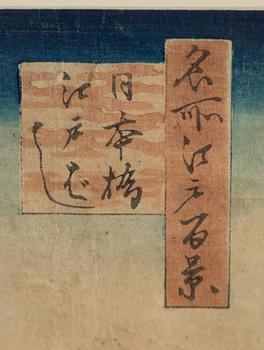 名所江戸百景
日本橋
江戸ば
し